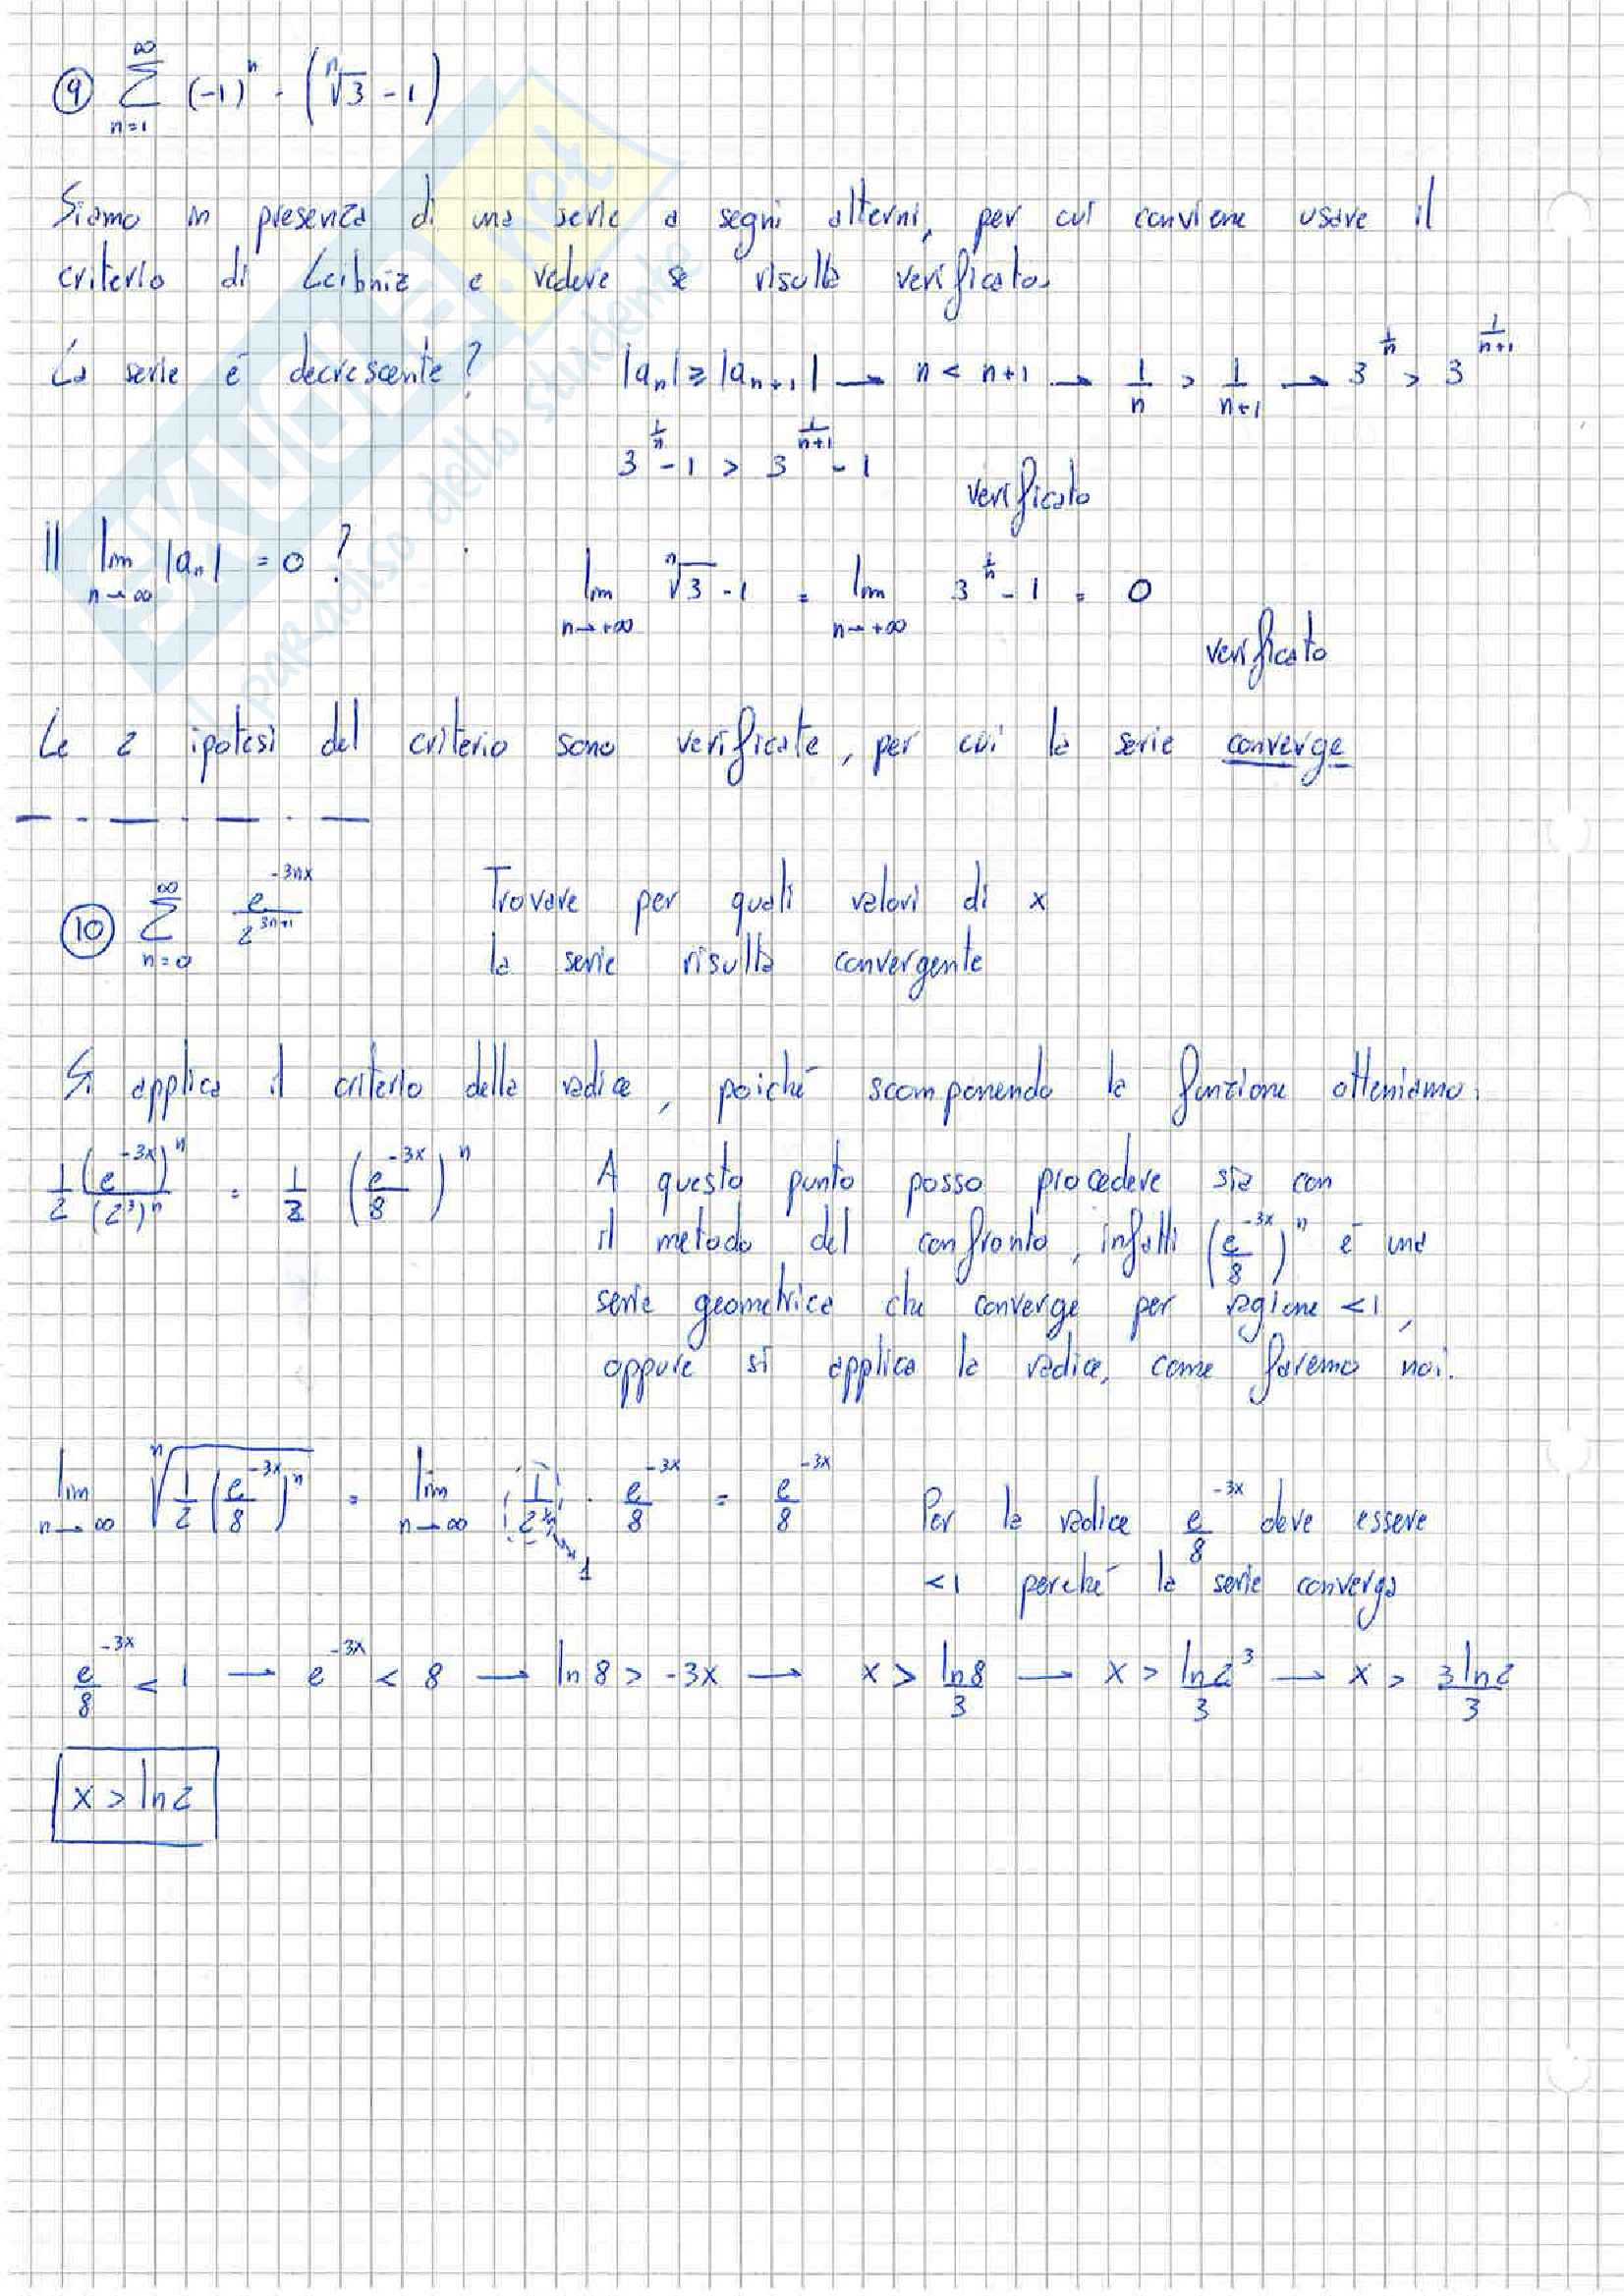 ⑨ ∑_{n=1}^{∞} (-1)^n · (ⁿ√3 - 1)
Siamo in presenza di una serie a segni alterni, per cui conviene usare il
criterio di Leibniz e vedere se risulta verificato.
La serie è decrescente? |a_n| ≥ |a_{n+1}| → n < n+1 → 1/n > 1/(n+1) → 3^{1/n} > 3^{1/(n+1)}
3^{1/n} - 1 > 3^{1/(n+1)} - 1 verificato
Il lim_{n→∞} |a_n| = 0 ? lim_{n→+∞} ⁿ√3 - 1 = lim_{n→+∞} 3^{1/n} - 1 = 0
verificato
Le 2 ipotesi del criterio sono verificate, per cui la serie converge
⑩ ∑_{n=0}^{∞} e^{-3nx}/2^{3n+1} Trovare per quali valori di x
la serie risulta convergente
Si applica il criterio della radice, poiché scomponendo la funzione otteniamo:
1/2 (e^{-3x})^n/(2^3)^n = 1/2 (e^{-3x}/8)^n A questo punto posso procedere sia con
il metodo del confronto, infatti (e^{-3x}/8)^n è una
serie geometrica che converge per ragione <1,
oppure si applica la radice, come faremo noi.
lim_{n→∞} ⁿ√(1/2 (e^{-3x}/8)^n) = lim_{n→∞} 1/2^{1/n} · e^{-3x}/8 = e^{-3x}/8 Per la radice e^{-3x}/8 deve essere
1
<1 perché la serie converga
e^{-3x}/8 < 1 → e^{-3x} < 8 → ln8 > -3x → x > ln8/3 → x > ln2^3/3 → x > 3ln2/3
x > ln2
skuola.net
il paradiso dello studente